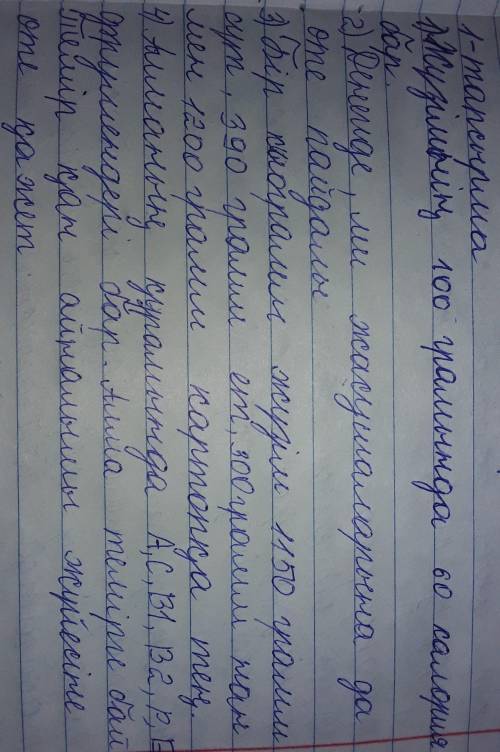 1-тапсырма
1) Жүзімнің 100 грамында 60 калория
бар.
2) Денеңде, ми жасушаларына да
өте пайдалы
3) Бір килограмм жүзім 1150 грамм
сүт, 390 грамм ет, 300 грамм нан
мен 1200 грамм картопқа тең.
4) Алманың құрамында А, С, В1, В2, Р, Е
дәрумендері бар. Алма темірге бай
Темір қан айналымы жүйесіне
өте қажет